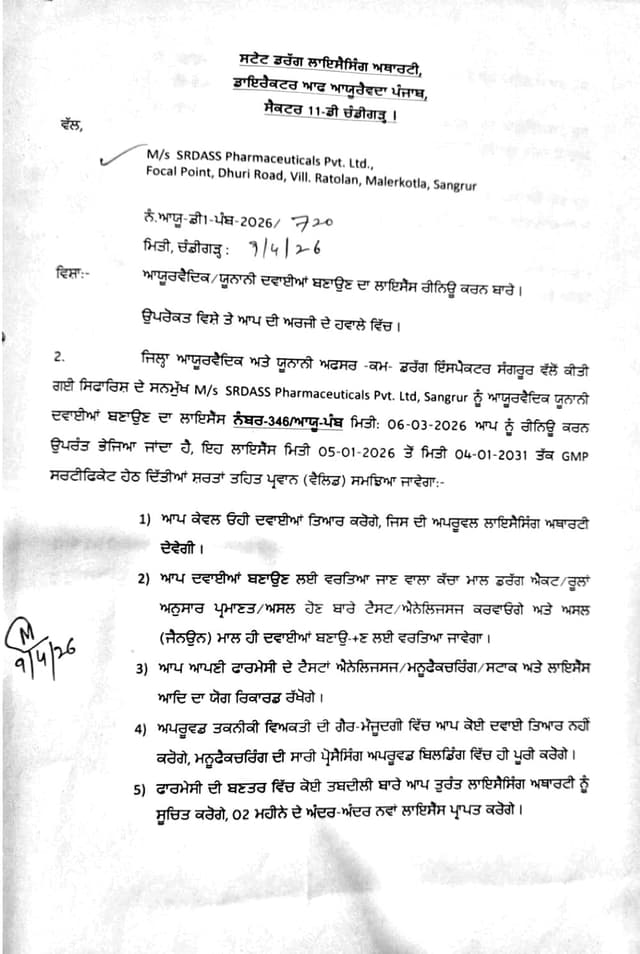 ਸਟੇਟ ਡਰੱਗ ਲਾਇਸੈਸਿੰਗ ਅਥਾਰਟੀ,
ਡਾਇਰੈਕਟਰ ਆਫ ਆਯੂਰੈਵਦਾ ਪੰਜਾਬ,
ਸੈਕਟਰ 11-ਡੀ ਚੰਡੀਗੜ੍ਹ ।
ਵੱਲ,
M/s SRDASS Pharmaceuticals Pvt. Ltd.,
Focal Point, Dhuri Road, Vill. Ratolan, Malerkotla, Sangrur
ਨੰ.ਆਯੂ-ਡੀ1-ਪੰਬ-2026/ 720
ਮਿਤੀ, ਚੰਡੀਗੜ੍ਹ: 9/4/26
ਵਿਸ਼ਾ:- ਆਯੂਰਵੈਦਿਕ/ਯੂਨਾਨੀ ਦਵਾਈਆਂ ਬਣਾਉਣ ਦਾ ਲਾਇਸੈਂਸ ਰੀਨਿਊ ਕਰਨ ਬਾਰੇ।
ਉਪਰੋਕਤ ਵਿਸ਼ੇ ਤੇ ਆਪ ਦੀ ਅਰਜੀ ਦੇ ਹਵਾਲੇ ਵਿੱਚ।
2. ਜਿਲ੍ਹਾ ਆਯੂਰਵੈਦਿਕ ਅਤੇ ਯੂਨਾਨੀ ਅਫਸਰ -ਕਮ- ਡਰੱਗ ਇੰਸਪੈਕਟਰ ਸੰਗਰੂਰ ਵੱਲੋਂ ਕੀਤੀ
ਗਈ ਸਿਫਾਰਿਸ਼ ਦੇ ਸਨਮੁੱਖ M/s SRDASS Pharmaceuticals Pvt. Ltd, Sangrur ਨੂੰ ਆਯੂਰਵੈਦਿਕ ਯੂਨਾਨੀ
ਦਵਾਈਆਂ ਬਣਾਉਣ ਦਾ ਲਾਇਸੈਂਸ ਨੰਬਰ-346/ਆਯੂ-ਪੰਬ ਮਿਤੀ: 06-03-2026 ਆਪ ਨੂੰ ਰੀਨਿਊ ਕਰਨ
ਉਪਰੰਤ ਭੇਜਿਆ ਜਾਂਦਾ ਹੈ, ਇਹ ਲਾਇਸੈਂਸ ਮਿਤੀ 05-01-2026 ਤੋਂ ਮਿਤੀ 04-01-2031 ਤੱਕ GMP
ਸਰਟੀਫਿਕੇਟ ਹੇਠ ਦਿੱਤੀਆਂ ਸ਼ਰਤਾਂ ਤਹਿਤ ਪ੍ਰਵਾਨ (ਵੈਲਿਡ) ਸਮਝਿਆ ਜਾਵੇਗਾ:-
1) ਆਪ ਕੇਵਲ ਓਹੀ ਦਵਾਈਆਂ ਤਿਆਰ ਕਰੋਗੇ, ਜਿਸ ਦੀ ਅਪਰੂਵਲ ਲਾਇਸੈਸਿੰਗ ਅਥਾਰਟੀ
ਦੇਵੇਗੀ।
2) ਆਪ ਦਵਾਈਆਂ ਬਣਾਉਣ ਲਈ ਵਰਤਿਆ ਜਾਣ ਵਾਲਾ ਕੱਚਾ ਮਾਲ ਡਰੱਗ ਐਕਟ/ਰੂਲਾਂ
ਅਨੁਸਾਰ ਪ੍ਰਮਾਣਤ/ਅਸਲ ਹੋਣ ਬਾਰੇ ਟੈਸਟ/ਐਨੇਲਿਜਸਜ ਕਰਵਾਓਗੇ ਅਤੇ ਅਸਲ
(ਜੈਨਊਨ) ਮਾਲ ਹੀ ਦਵਾਈਆਂ ਬਣਾਉ-+ਣ ਲਈ ਵਰਤਿਆ ਜਾਵੇਗਾ।
3) ਆਪ ਆਪਣੀ ਫਾਰਮੇਸੀ ਦੇ ਟੈਸਟਾਂ ਐਨੇਲਿਜਸਜ/ਮਨੂਫੈਕਚਰਿੰਗ/ਸਟਾਕ ਅਤੇ ਲਾਇਸੈਂਸ
ਆਦਿ ਦਾ ਯੋਗ ਰਿਕਾਰਡ ਰੱਖੋਗੇ।
M
9/4/26
4) ਅਪਰੂਵਡ ਤਕਨੀਕੀ ਵਿਅਕਤੀ ਦੀ ਗੈਰ-ਮੌਜੂਦਗੀ ਵਿੱਚ ਆਪ ਕੋਈ ਦਵਾਈ ਤਿਆਰ ਨਹੀਂ
ਕਰੋਗੇ, ਮਨੂਫੈਕਚਰਿੰਗ ਦੀ ਸਾਰੀ ਪ੍ਰੋਸੈਸਿੰਗ ਅਪਰੂਵਡ ਬਿਲਡਿੰਗ ਵਿੱਚ ਹੀ ਪੂਰੀ ਕਰੋਗੇ।
5) ਫਾਰਮੇਸੀ ਦੀ ਬਣਤਰ ਵਿੱਚ ਕੋਈ ਤਬਦੀਲੀ ਬਾਰੇ ਆਪ ਤੁਰੰਤ ਲਾਇਸੈਸਿੰਗ ਅਥਾਰਟੀ ਨੂੰ
ਸੂਚਿਤ ਕਰੋਗੇ, 02 ਮਹੀਨੇ ਦੇ ਅੰਦਰ-ਅੰਦਰ ਨਵਾਂ ਲਾਇਸੈਂਸ ਪ੍ਰਾਪਤ ਕਰੋਗੇ।